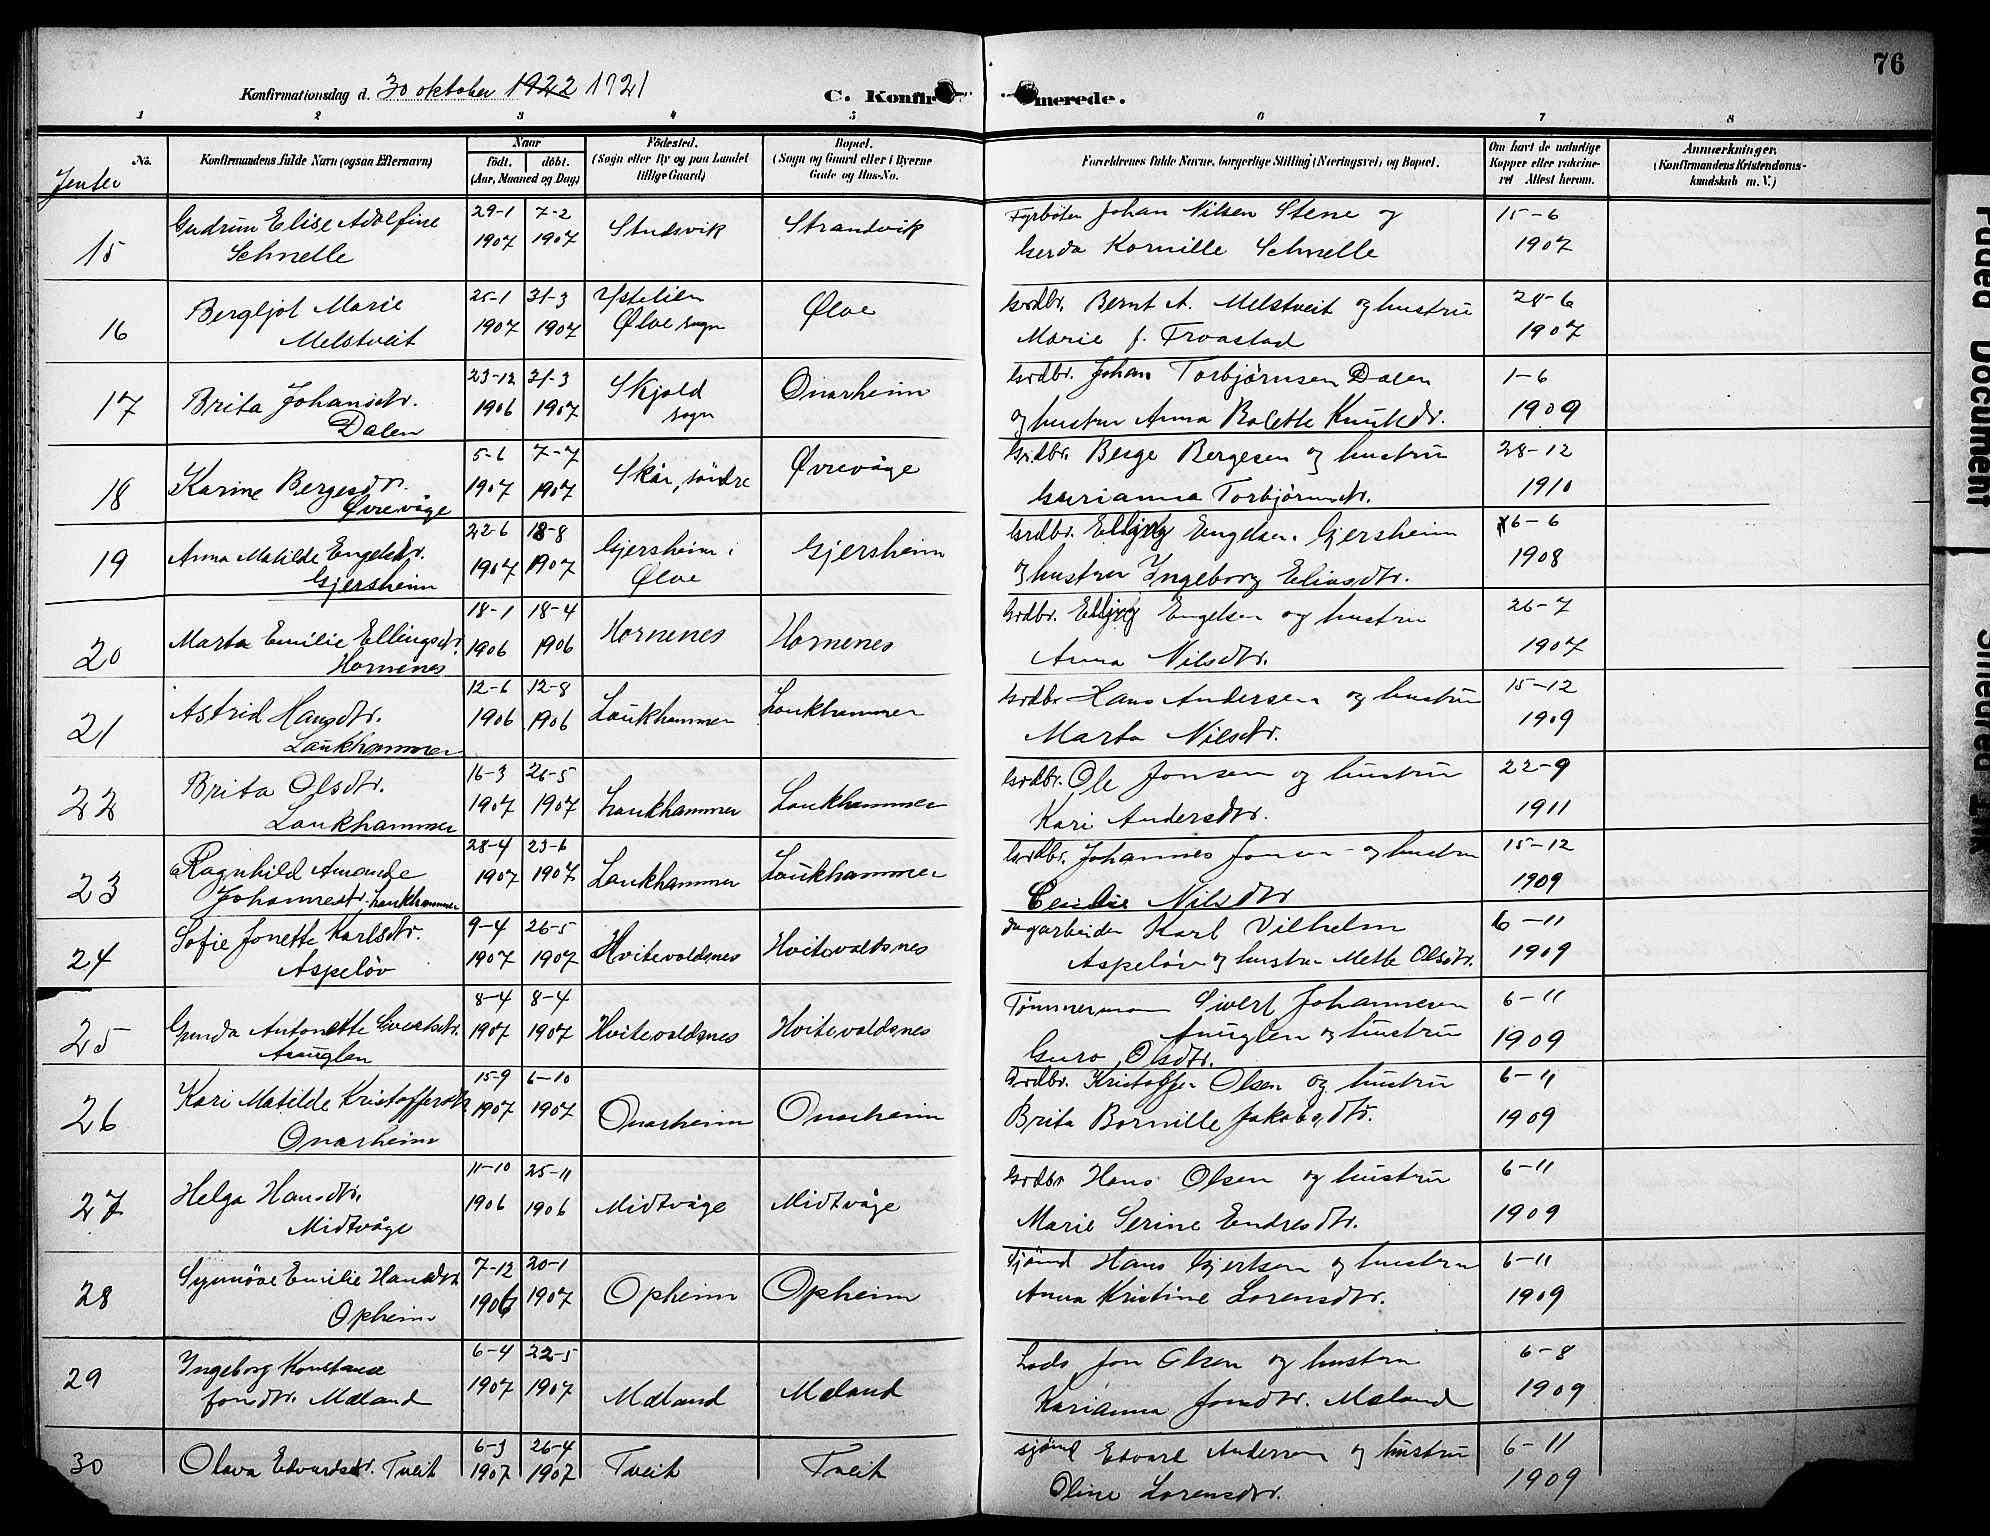 76
Konfirmationsdag d. 30 oktober 1922 1921
C. Konfir merede.
1 2 3 4 5 6 7 8
No. Konfirmandens fulde Navn (ogsaa Efternavn) Naar født. døbt. (Aar, Maaned og Dag) Fødested. (Sogn eller By og paa Landet tillige Gaard) Bopæl. (Sogn og Gaard eller i Byerne Gade og Hus-No. Forældrenes fulde Navne, borgerlige Stilling (Næringsvei) og Bopæl. Om havt de naturlige Kopper eller vakcineret Attest herom. Anmærkninger. (Konfirmandens Kristendomskundskab m. V.)
Jenter
15 Gudrun Elise Adolfine Schnelle 29-1 1907 7-2 1907 Strandvik Fyrbøter Johan Nilsen Stene og Gerda Kornille Schnelle 15-6 1907
16 Bergljot Marie Melstveit 25-1 1907 31-3 1907 Ystelien Ølve sogn Ølve Grdbr. Bernt A. Melstveit og hustru Marie f. Troastad 28-6 1907
17 Brita Johansdtr. Dalen 23-12 1906 31-3 1907 Skjold sogn Onarheim Grdbr. Johan Torbjørnsen Dalen og hustru Anna Bolette Knutsdtr. 1-6 1909
18 Karine Bergesdtr. Øvrevåge 5-6 1907 7-7 1907 Skår, søndre Øvrevåge Grdbr. Berge Bergesen og hustru Gurianna Torbjørnsdtr. 28-12 1910
19 Anna Matilde Engelsdtr. Gjersheim 22-6 1907 18-8 1907 Gjersheim i Ølve Gjersheim Grdbr. Elling Engelsen Gjersheim og hustru Ingeborg Eliasdtr. 6-6 1908
20 Marta Emilie Ellingsdtr. Hornenes 18-1 1906 18-4 1906 Hornenes Hornenes Grdbr. Elling Engelsen og hustru Anna Nilsdtr. 26-7 1907
21 Astrid Hansdtr. Laukhammer 12-6 1906 12-8 1906 Laukhammer Laukhammer Grdbr Hans Andersen og hustru Marta Nilsdtr. 15-12 1909
22 Brita Olsdtr. Laukhammer 16-3 1907 26-5 1907 Laukhammer Laukhammer Grdbr. Ole Jonsen og hustru Kari Andersdtr. 22-9 1911
23 Ragnhild Amanda Johannesdtr. Laukhammer 28-4 1907 23-6 1907 Laukhammer Laukhammer Grdbr. Johannes Jonsen og hustru Cecilie Nilsdtr 15-12 1909
24 Sofie Jonette Karlsdtr. Aspeløv 9-4 1907 26-5 1907 Hvitevoldsnes Hvitevoldsnes Dagarbeider Karl Vilhelm Aspeløv og hustru Mette Olsdtr. 6-11 1909
25 Gunda Antonette Sivertsdtr. Anuglen 8-4 1907 8-4 1907 Hvitevoldsnes Hvitevoldsnes Tømmermann Sivert Johannesen Anuglen og hustru Guro Olsdtr. 6-11 1909
26 Kari Matilde Kristoffersdtr Onarheim 15-9 1907 6-10 1907 Onarheim Onarheim Grdbr. Kristoffer Olsen og hustru Brita Bornille Jakobsdtr. 6-11 1909
27 Helga Hansdtr. Midtvåge 11-10 1906 25-11 1906 Midtvåge Midtvåge Grdbr Hans Olsen og hustru Marie Serine Endresdtr. 6-11 1909
28 Synnøve Emilie Hansdtr. Opheim 7-12 1906 20-1 1907 Opheim Opheim Sjømd Hans Gjertsen og hustru Anna Kristine Lorensdtr. 6-11 1909
29 Ingeborg Konstanse Jonsdtr. Mæland 6-4 1907 22-5 1907 Mæland Mæland Lods Jon Olsen og hustru Karianna Jonsdtr. Mæland 6-8 1909
30 Olava Edvardsdtr. Tveit 6-3 1907 26-4 1907 Tveit Tveit sjømd Edvard Andersen og hustru Oline Lorensdtr. 6-11 1909
Faded Document
Smeared Ink